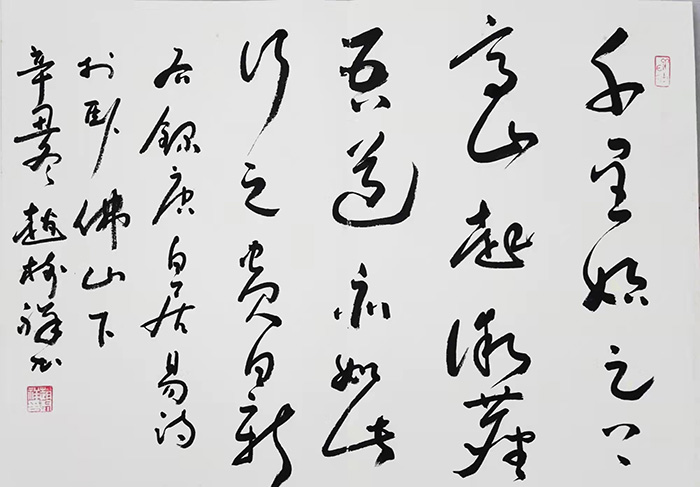 千里始足下
高山起微塵
吾道亦如此
行之貴日新
右録唐白居易詩
於臥佛山下
辛丑冬趙祥书